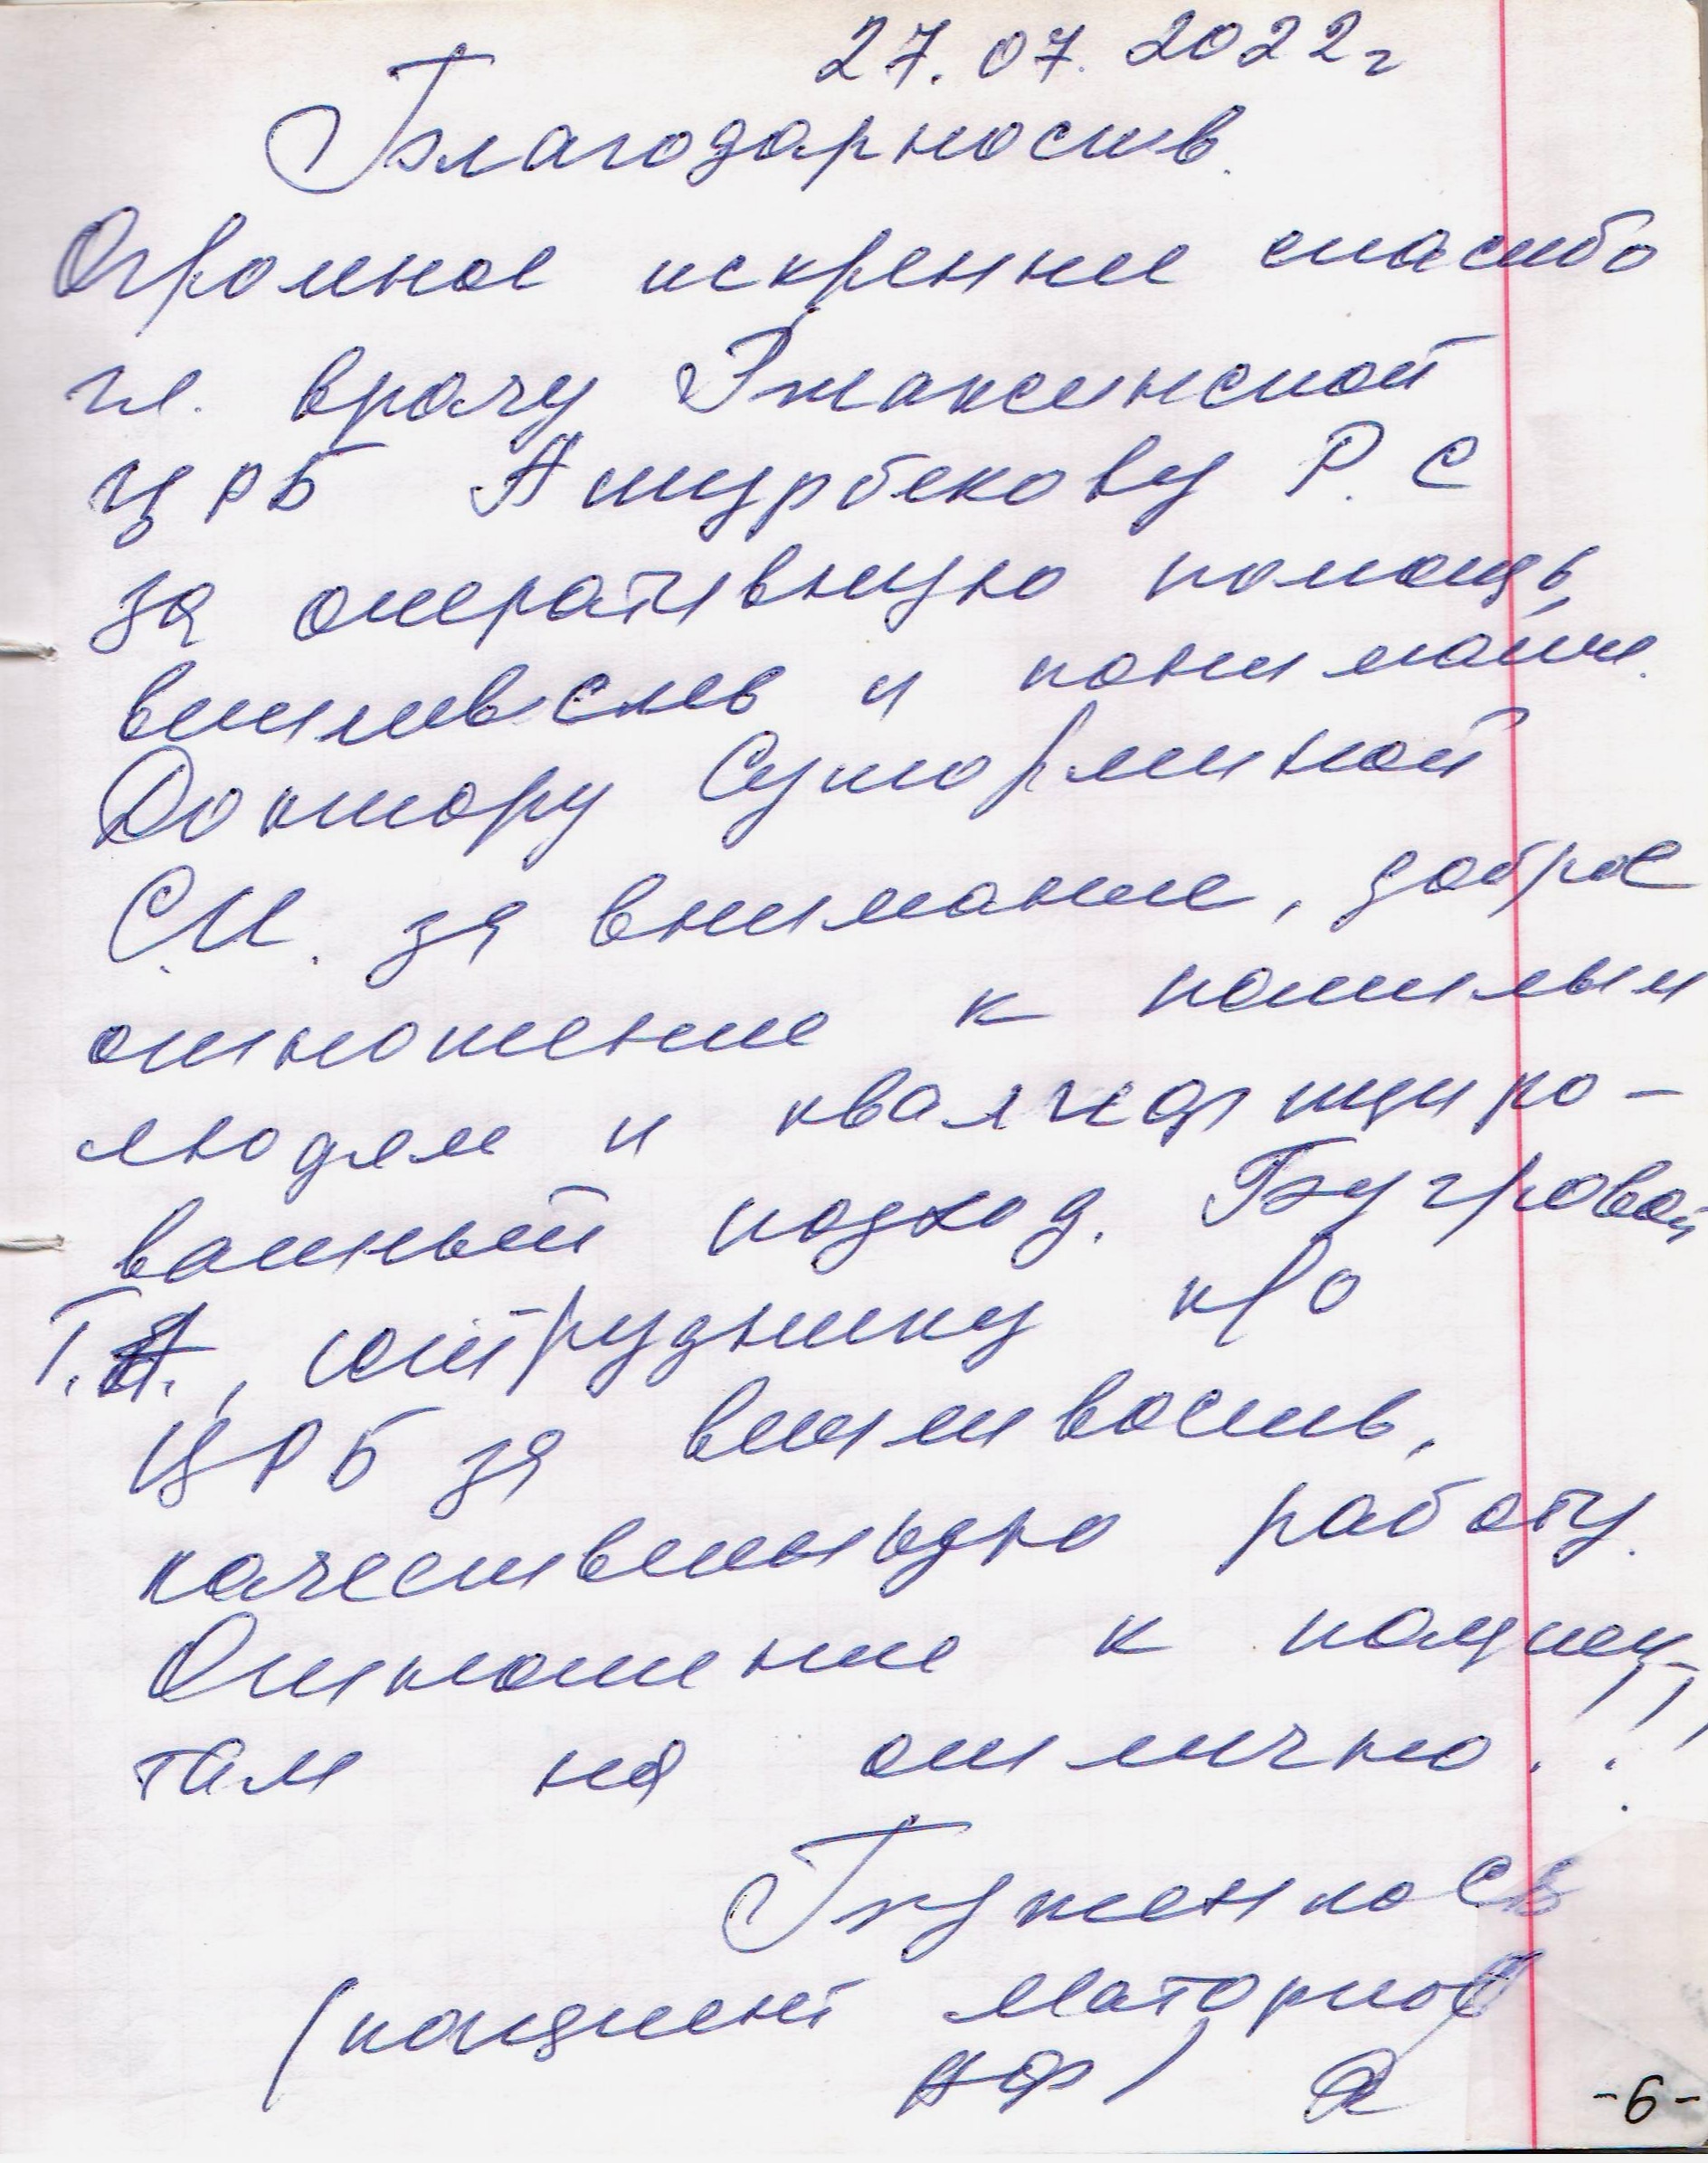 27.07.2022г
Благодарность.
Огромное искреннее спасибо
гл. врачу Ржаксинской
ЦРБ Ашурбекову Р.С
за оперативную помощь,
вежливость и понимание.
Доктору Суторминой
С.И. за внимание, доброе
отношение к пожилым
людям и квалифициро-
ванный подход. Бугровой
Т.А., сотруднику
ЦРБ за
качественную работу.
Отношение к пациен-
там на отлично!!!
(пациент
-6-